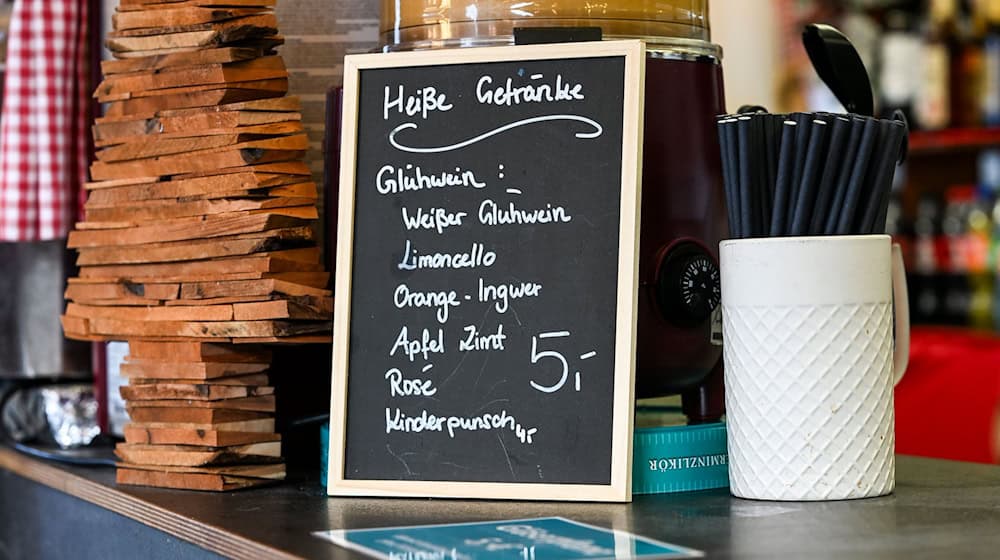 Heiße Getränke
Glühwein :
Weißer Glühwein
Limoncello
Orange - Ingwer
Apfel Zimt 5,-
Rosé
Kinderpunsch 4,-
ERMINZLIKÖR